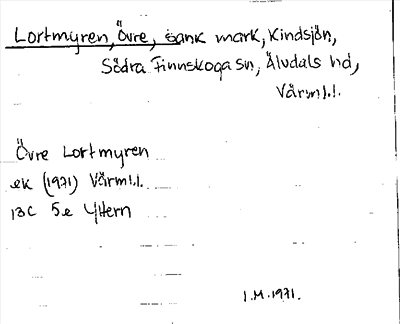 Lortmyren, Övre, sank mark, Kindsjön,
Södra Finnskoga sn, Älvdals hd,
Värml.l.
Övre Lortmyren
ek (1971) Värml.l.
13C 5e Yttern
I.M. 1971.